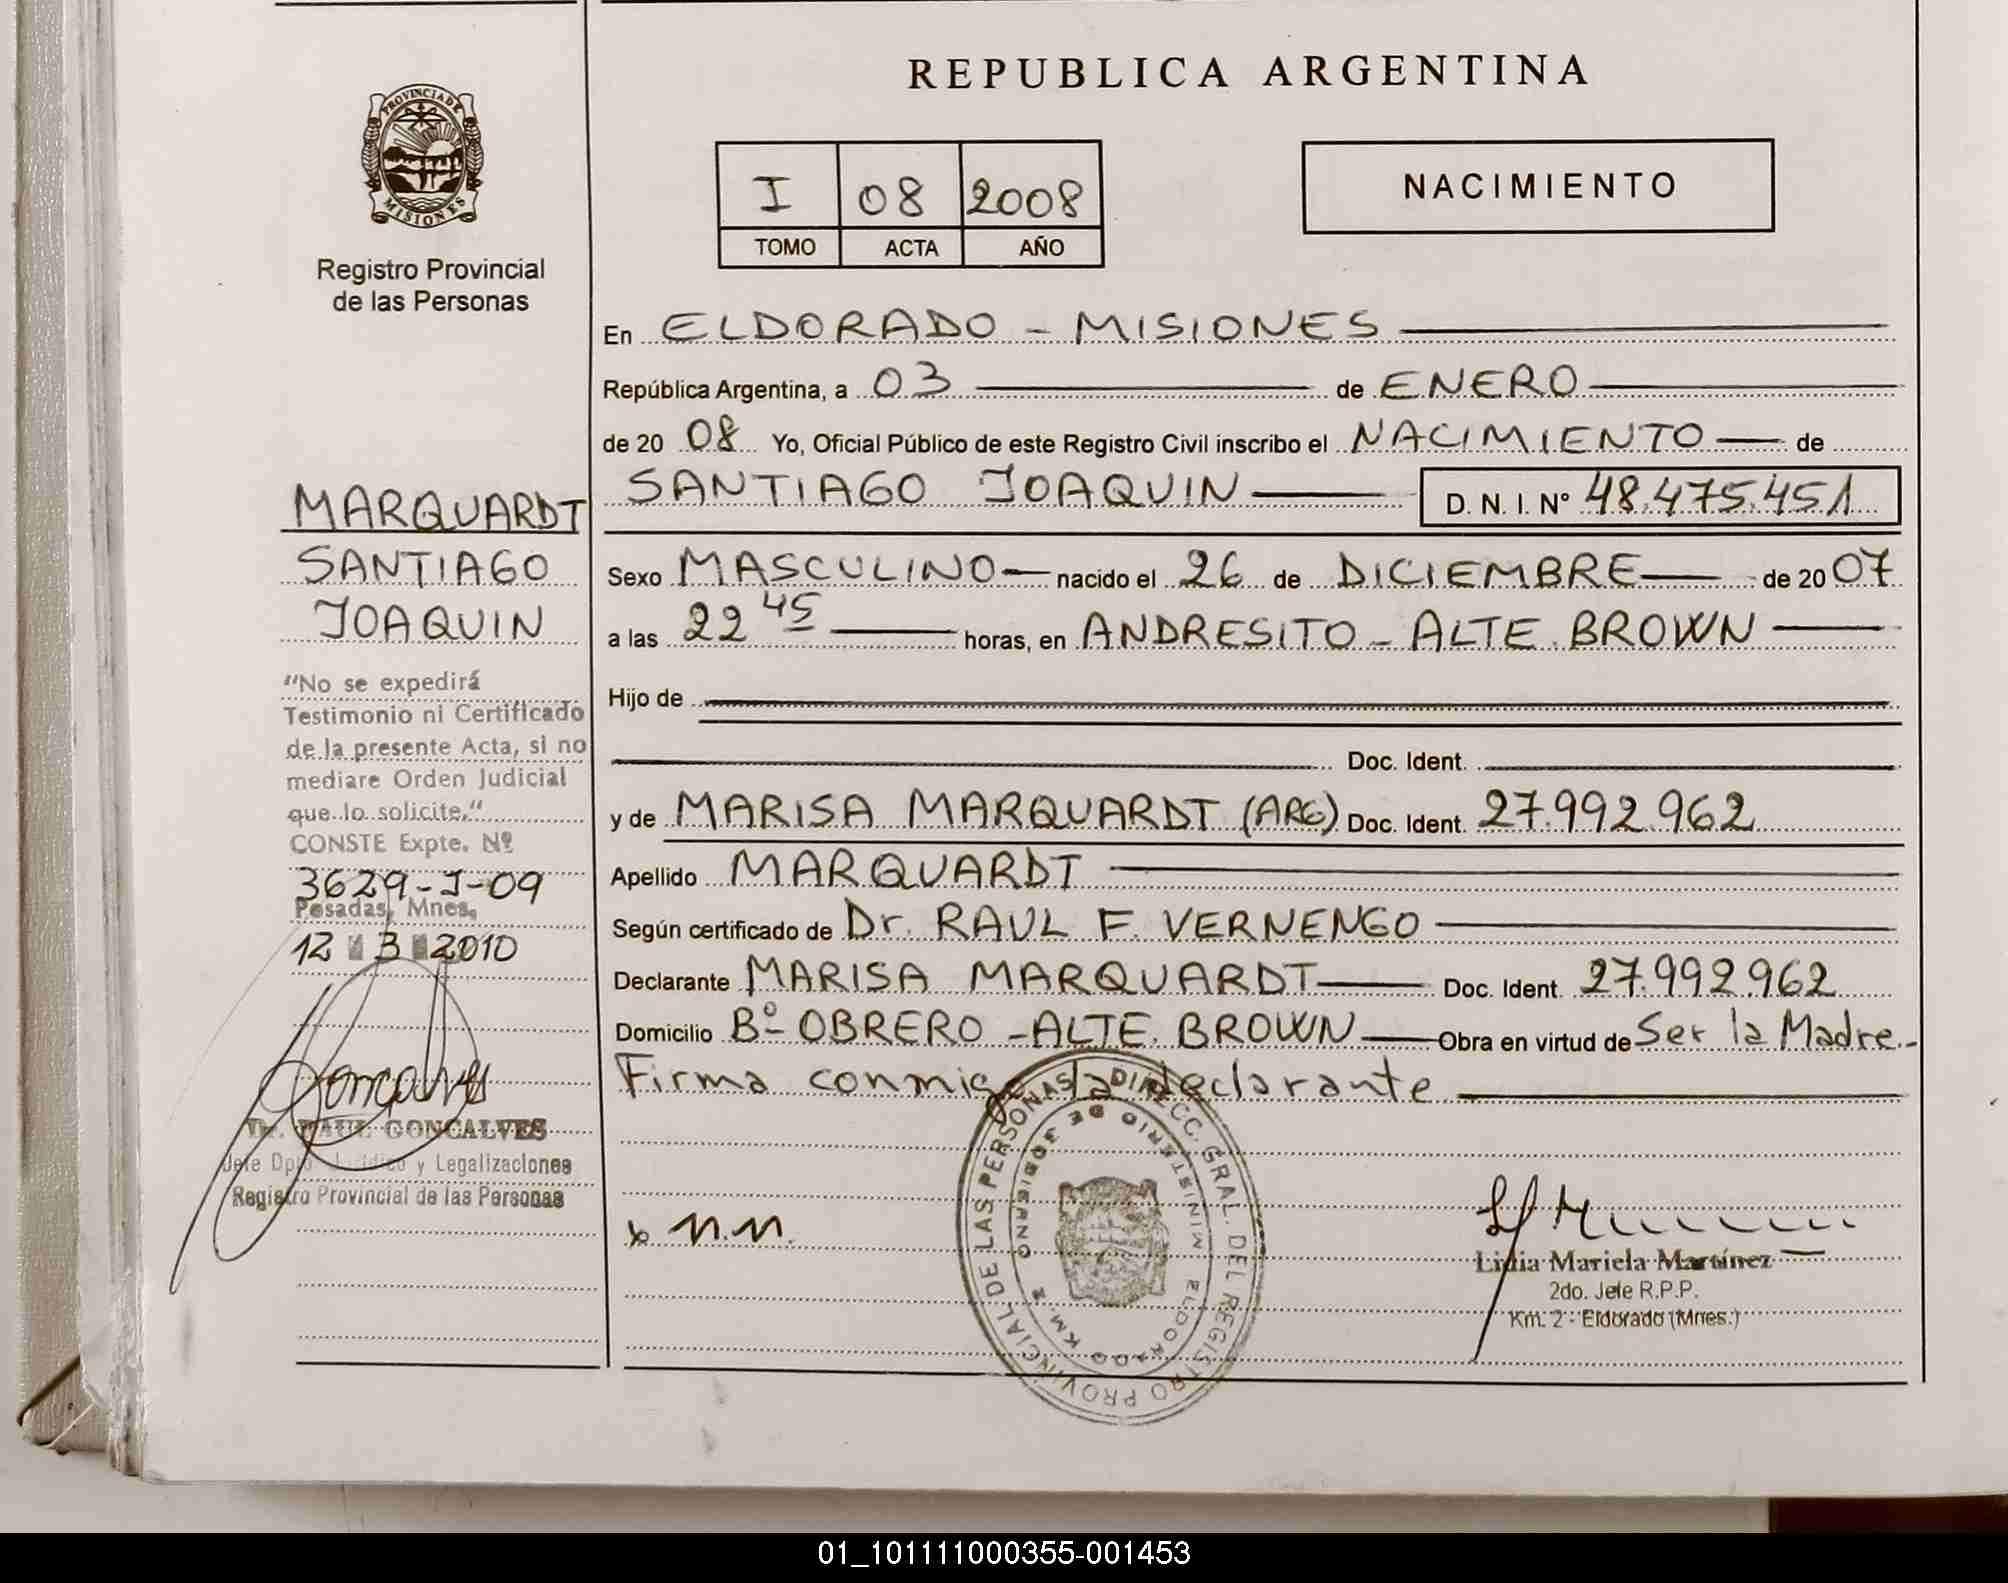 REPUBLICA ARGENTINA
PROVINCIA DE
MISIONES
Registro Provincial
de las Personas
I 08 2008
TOMO ACTA AÑO
NACIMIENTO
En ELDORADO - MISIONES
República Argentina, a 03 de ENERO
de 20 08 Yo, Oficial Público de este Registro Civil inscribo el NACIMIENTO de
SANTIAGO JOAQUIN D. N. I. Nº 48.475.451
Sexo MASCULINO nacido el 26 de DICIEMBRE de 20 07
a las 22 45 horas, en ANDRESITO - ALTE. BROWN
Hijo de
Doc. Ident.
y de MARISA MARQUARDT (ARG) Doc. Ident. 27.992.962
Apellido MARQUARDT
Según certificado de Dr. RAUL F. VERNENGO
Declarante MARISA MARQUARDT Doc. Ident. 27.992.962
Domicilio Bº OBRERO - ALTE. BROWN Obra en virtud de Ser la Madre.-
Firma conmigo la declarante
MARQUARDT
SANTIAGO
JOAQUIN
"No se expedirá
Testimonio ni Certificado
de la presente Acta, si no
mediare Orden Judicial
que lo solicite."
CONSTE Expte. Nº
3629-J-09
Posadas, Mnes,
12 3 2010
Goncalves
Dr. RAUL GONCALVES
Jefe Dpto. Jurídico y Legalizaciones
Registro Provincial de las Personas
x M.M.
DIRECC. GRAL. DEL REGISTRO PROVINCIAL DE LAS PERSONAS
MINISTERIO DE GOBIERNO
ELDORADO KM. 2
Lidia Mariela Martínez
2do. Jefe R.P.P.
Km. 2 - Eldorado (Mnes.)
01_101111000355-001453